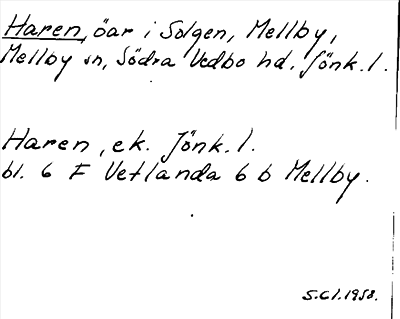 Haren, öar i Solgen, Mellby,
Mellby sn, Södra Vedbo hd. Jönk. l.
Haren, ek. Jönk. l.
bl. 6 F Vetlanda 6 b Mellby.
S.Cl. 1958.